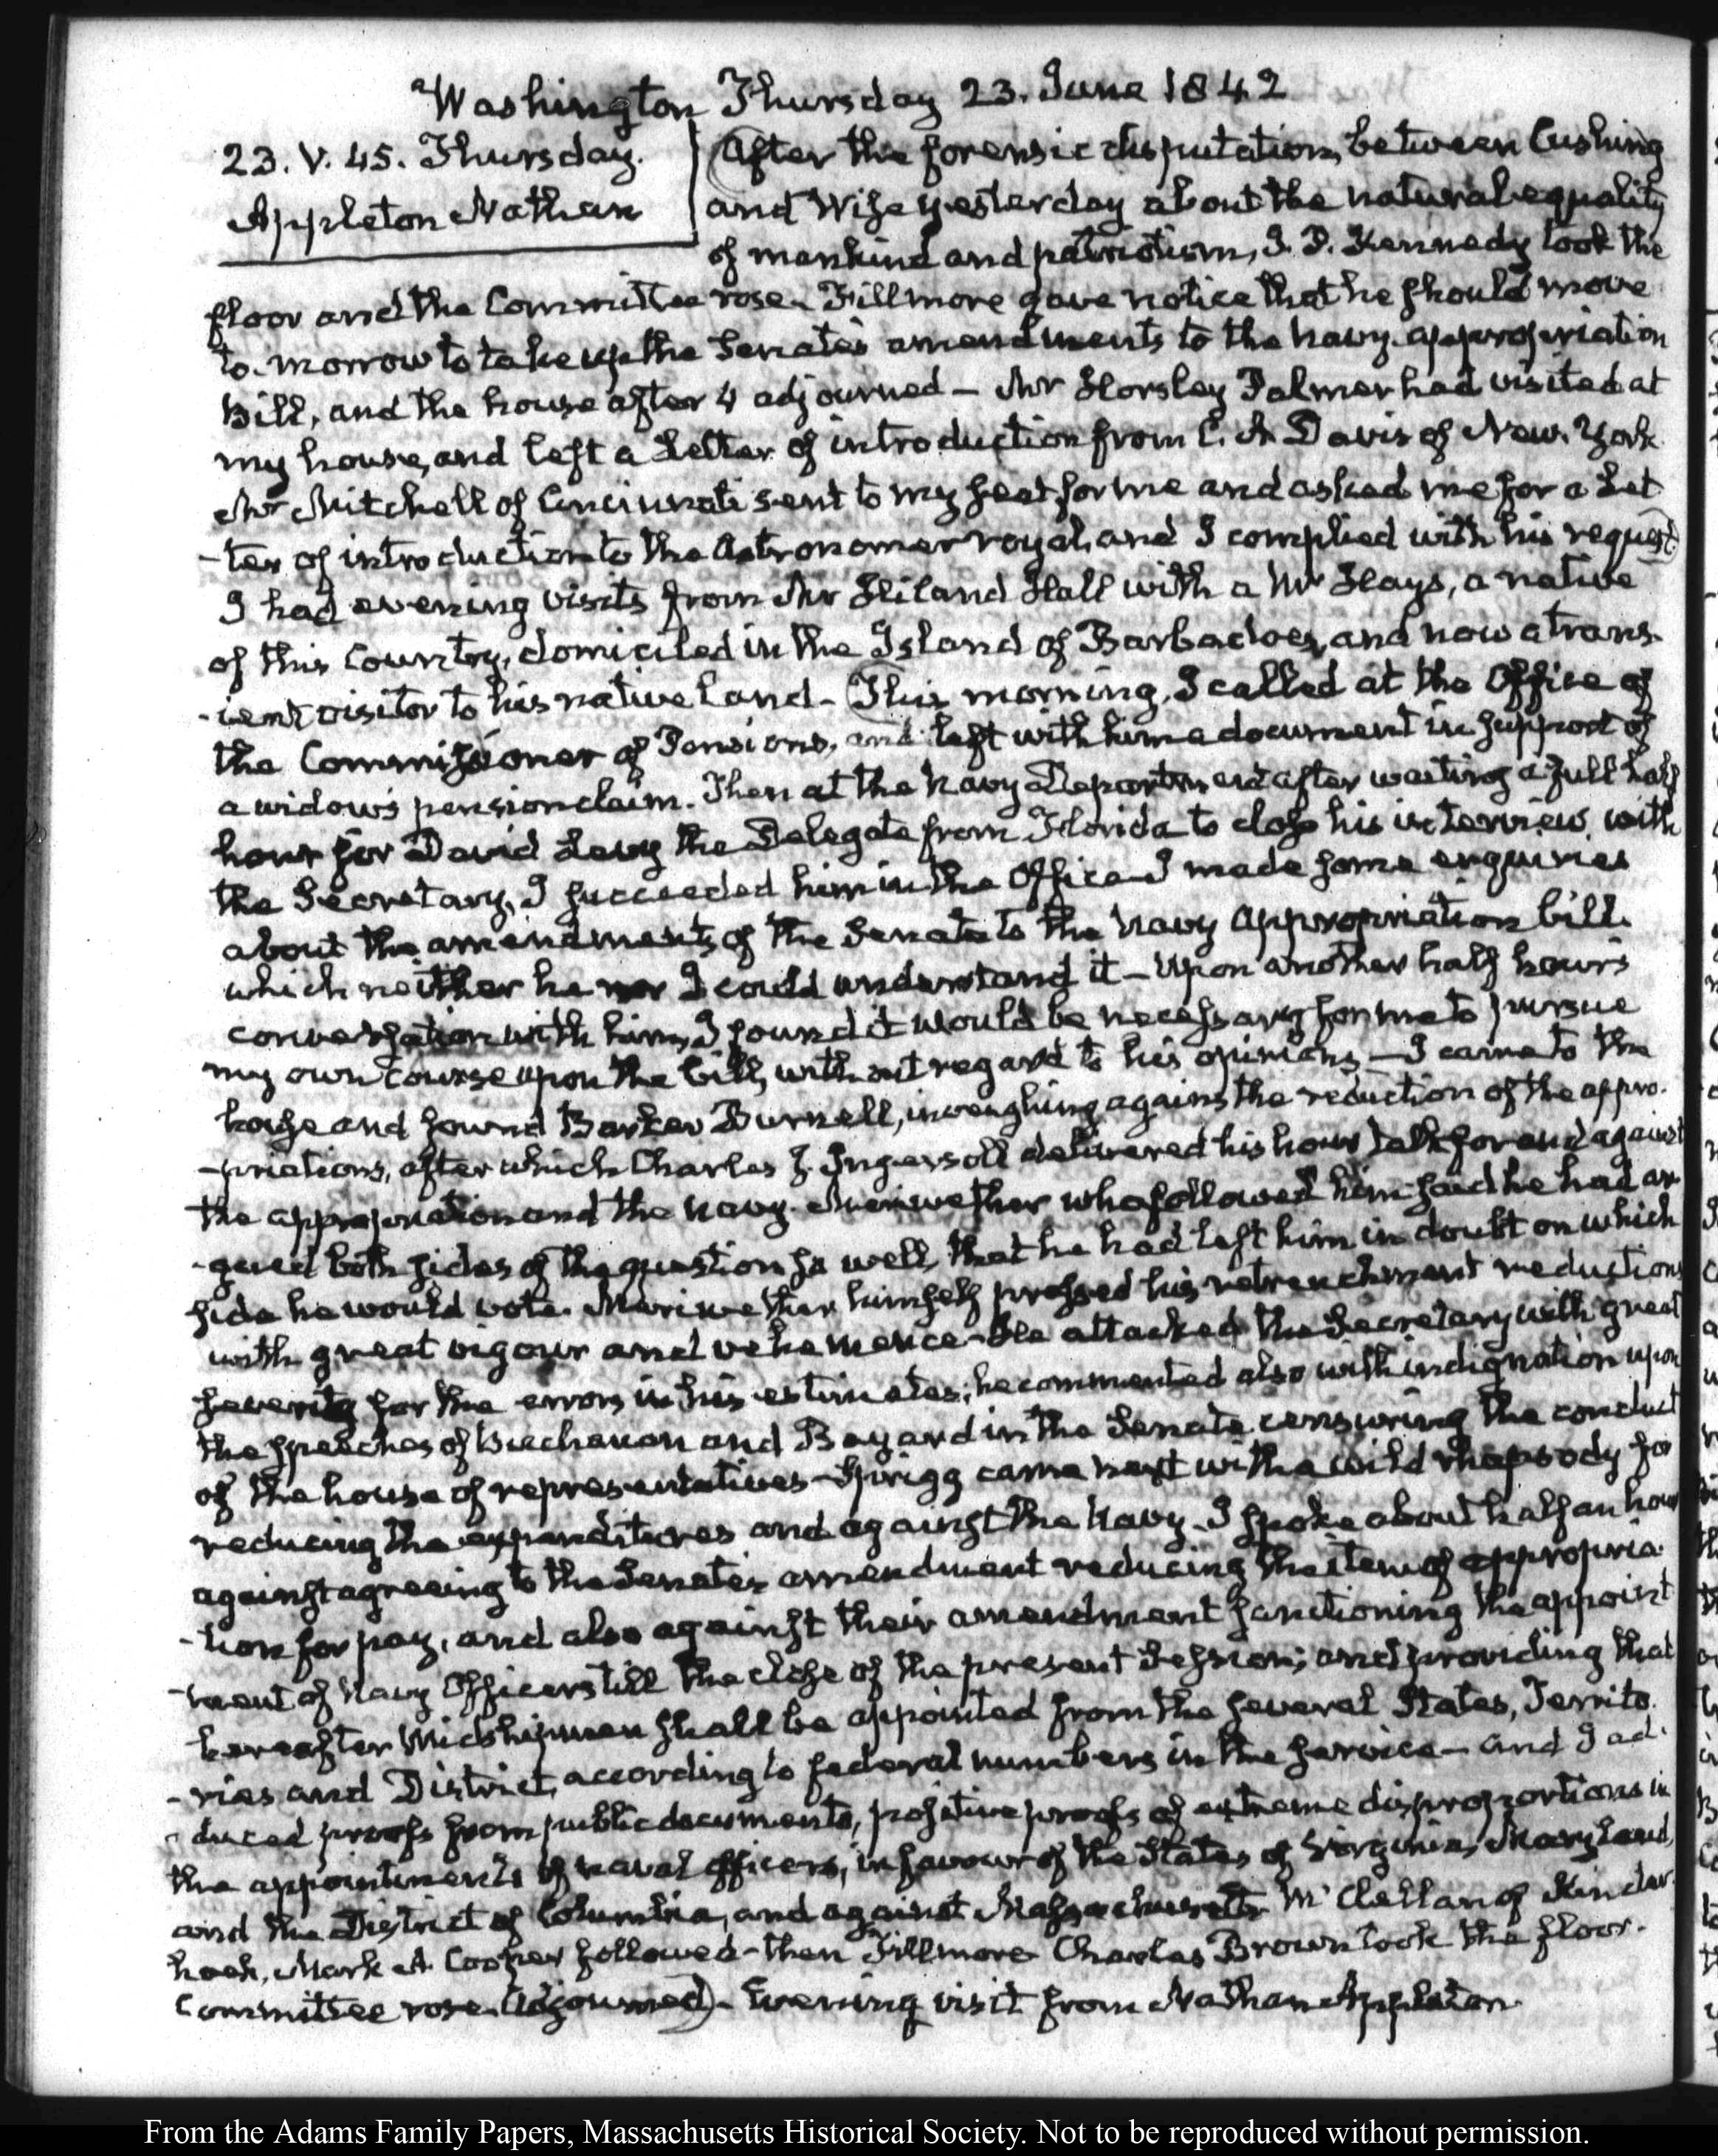 Washington Thursday 23. June 1842
23. V. 45. Thursday.
Appleton Nathan
After the forensic disputation, between Cushing
and Wise yesterday about the natural equality
of mankind and patriotism, J. P. Kennedy took the
floor and the Committee rose. Fillmore gave notice that he should move
to-morrow to take up the Senate's amendments to the navy appropriation
Bill, and the house after 4 adjourned — Mr Horsley Palmer had visited at
my house, and left a Letter of introduction from C. A. Davis of New-York
Mr Mitchell of Cincinnati sent to my seat for me and asked me for a Let
-ter of introduction to the Astronomer royal, and I complied with his request
I had evening visits from Mr Hiland Hall with a Mr Hays, a native
of this Country, domiciled in the Island of Barbadoes, and now a trans-
-ient visitor to his native Land - This morning, I called at the Office of
the Commissioner of Pensions, and left with him a document in support of
a widow's pension claim. Then at the Navy Department after waiting a full half
hour for David Levy the Delegate from Florida to close his interview with
the Secretary, I succeeded him in the Office I made some enquiries
about the amendments of the Senate to the Navy Appropriation bill
which neither he nor I could understand it — Upon another half hour's
conversation with him, I found it would be necessary for me to pursue
my own course upon the bill, without regard to his opinions — I came to the
house and found Barker Burnell, inveighing against the reduction of the appro-
-priations, after which Charles J. Ingersoll delivered his hour talk for and against
the appropriation and the navy. Meriwether who followed him said he had ar-
-gued both sides of the question so well, that he had left him in doubt on which
side he would vote. Meriwether himself pressed his retrenchment reductions
with great vigour and vehemence - He attacked the Secretary with great
severity for the errors in his estimates; he commented also with indignation upon
the speeches of Buchanan and Bayard in the Senate censuring the conduct
of the house of representatives - Sprigg came next with a wild rhapsody for
reducing the expenditures and against the Navy. I spoke about half an hour
against agreeing to the Senate's amendment reducing the item of appropria-
-tion for pay, and also against their amendment sanctioning the appoint
-ment of Navy Officers till the close of the present Session; and providing that
hereafter Midshipmen shall be appointed from the several States, Territo-
-ries and District, according to federal numbers in the service — and I ad-
-duced proofs from public documents, positive proofs of extreme disproportions in
the appointments of naval officers, in favour of the States of Virginia, Maryland,
and the District of Columbia, and against Massachusetts McClellan of Kinder-
hook, Mark A Cooper followed - then Fillmore Charles Brown took the floor.
Committee rose. Adjourned) - Evening visit from Nathan Appleton.
From the Adams Family Papers, Massachusetts Historical Society. Not to be reproduced without permission.